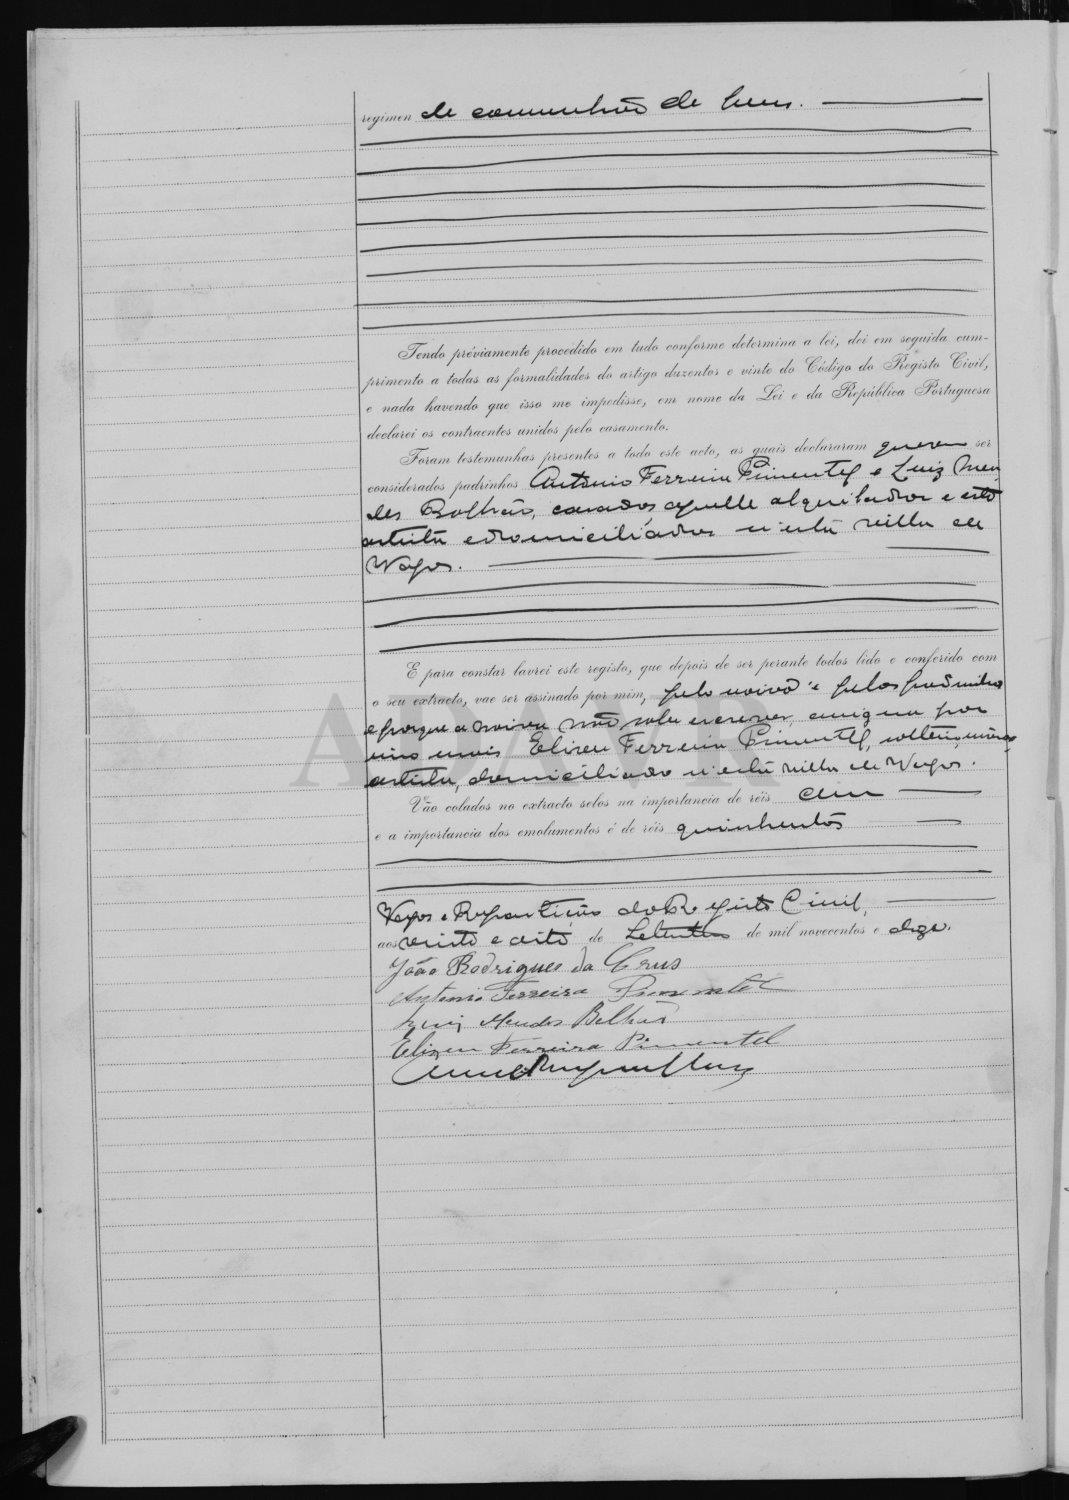 regimen de comunhão de bens.
Tendo préviamente procedido em tudo conforme determina a lei, dei em seguida cum-
primento a todas as formalidades do artigo duzentos e vinte do Código do Registo Civil,
e nada havendo que isso me impedisse, em nome da Lei e da República Portuguesa
declarei os contraentes unidos pelo casamento.
Foram testemunhas presentes a todo este acto, as quais declararam querem ser
considerados padrinhos Antonio Ferreira Pimentel e Luiz Men
des Bolhão, casados aquelle alquilador e este
artista e domiciliados n'esta villa de
Vagos.
E para constar lavrei este registo, que depois de ser perante todos lido e conferido com
o seu extracto, vae ser assinado por mim, pelo noivo e pelos padrinhos
e porque a noiva não sabe escrever, assigna por
Eliseu Ferreira Pimentel, solteiro,
artista, domiciliado n'esta villa de Vagos.
Vão colados no extracto selos na importancia de réis cem
e a importancia dos emolumentos é de réis quinhentos
Vagos e Repartição do Registo Civil,
aos vinte e oito de Setembro de mil novecentos e doze.
João Rodrigues da Crus
Antonio Ferreira Pimentel
Luiz Mendes Bolhão
Eliseu Ferreira Pimentel
ADAVR